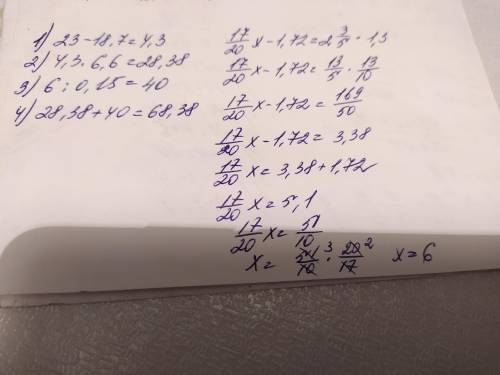 1) 23-18,7=4,3
2) 4,3·6,6=28,38
3) 6:0,15=40
4) 28,38+40=68,38
17/20 x-1,72=2 3/5·1,3
17/20 x-1,72=13/5·13/10
17/20 x-1,72=169/50
17/20 x-1,72=3,38
17/20 x=3,38+1,72
17/20 x=5,1
17/20 x=51/10
x=51/10 3·20/17 2 x=6